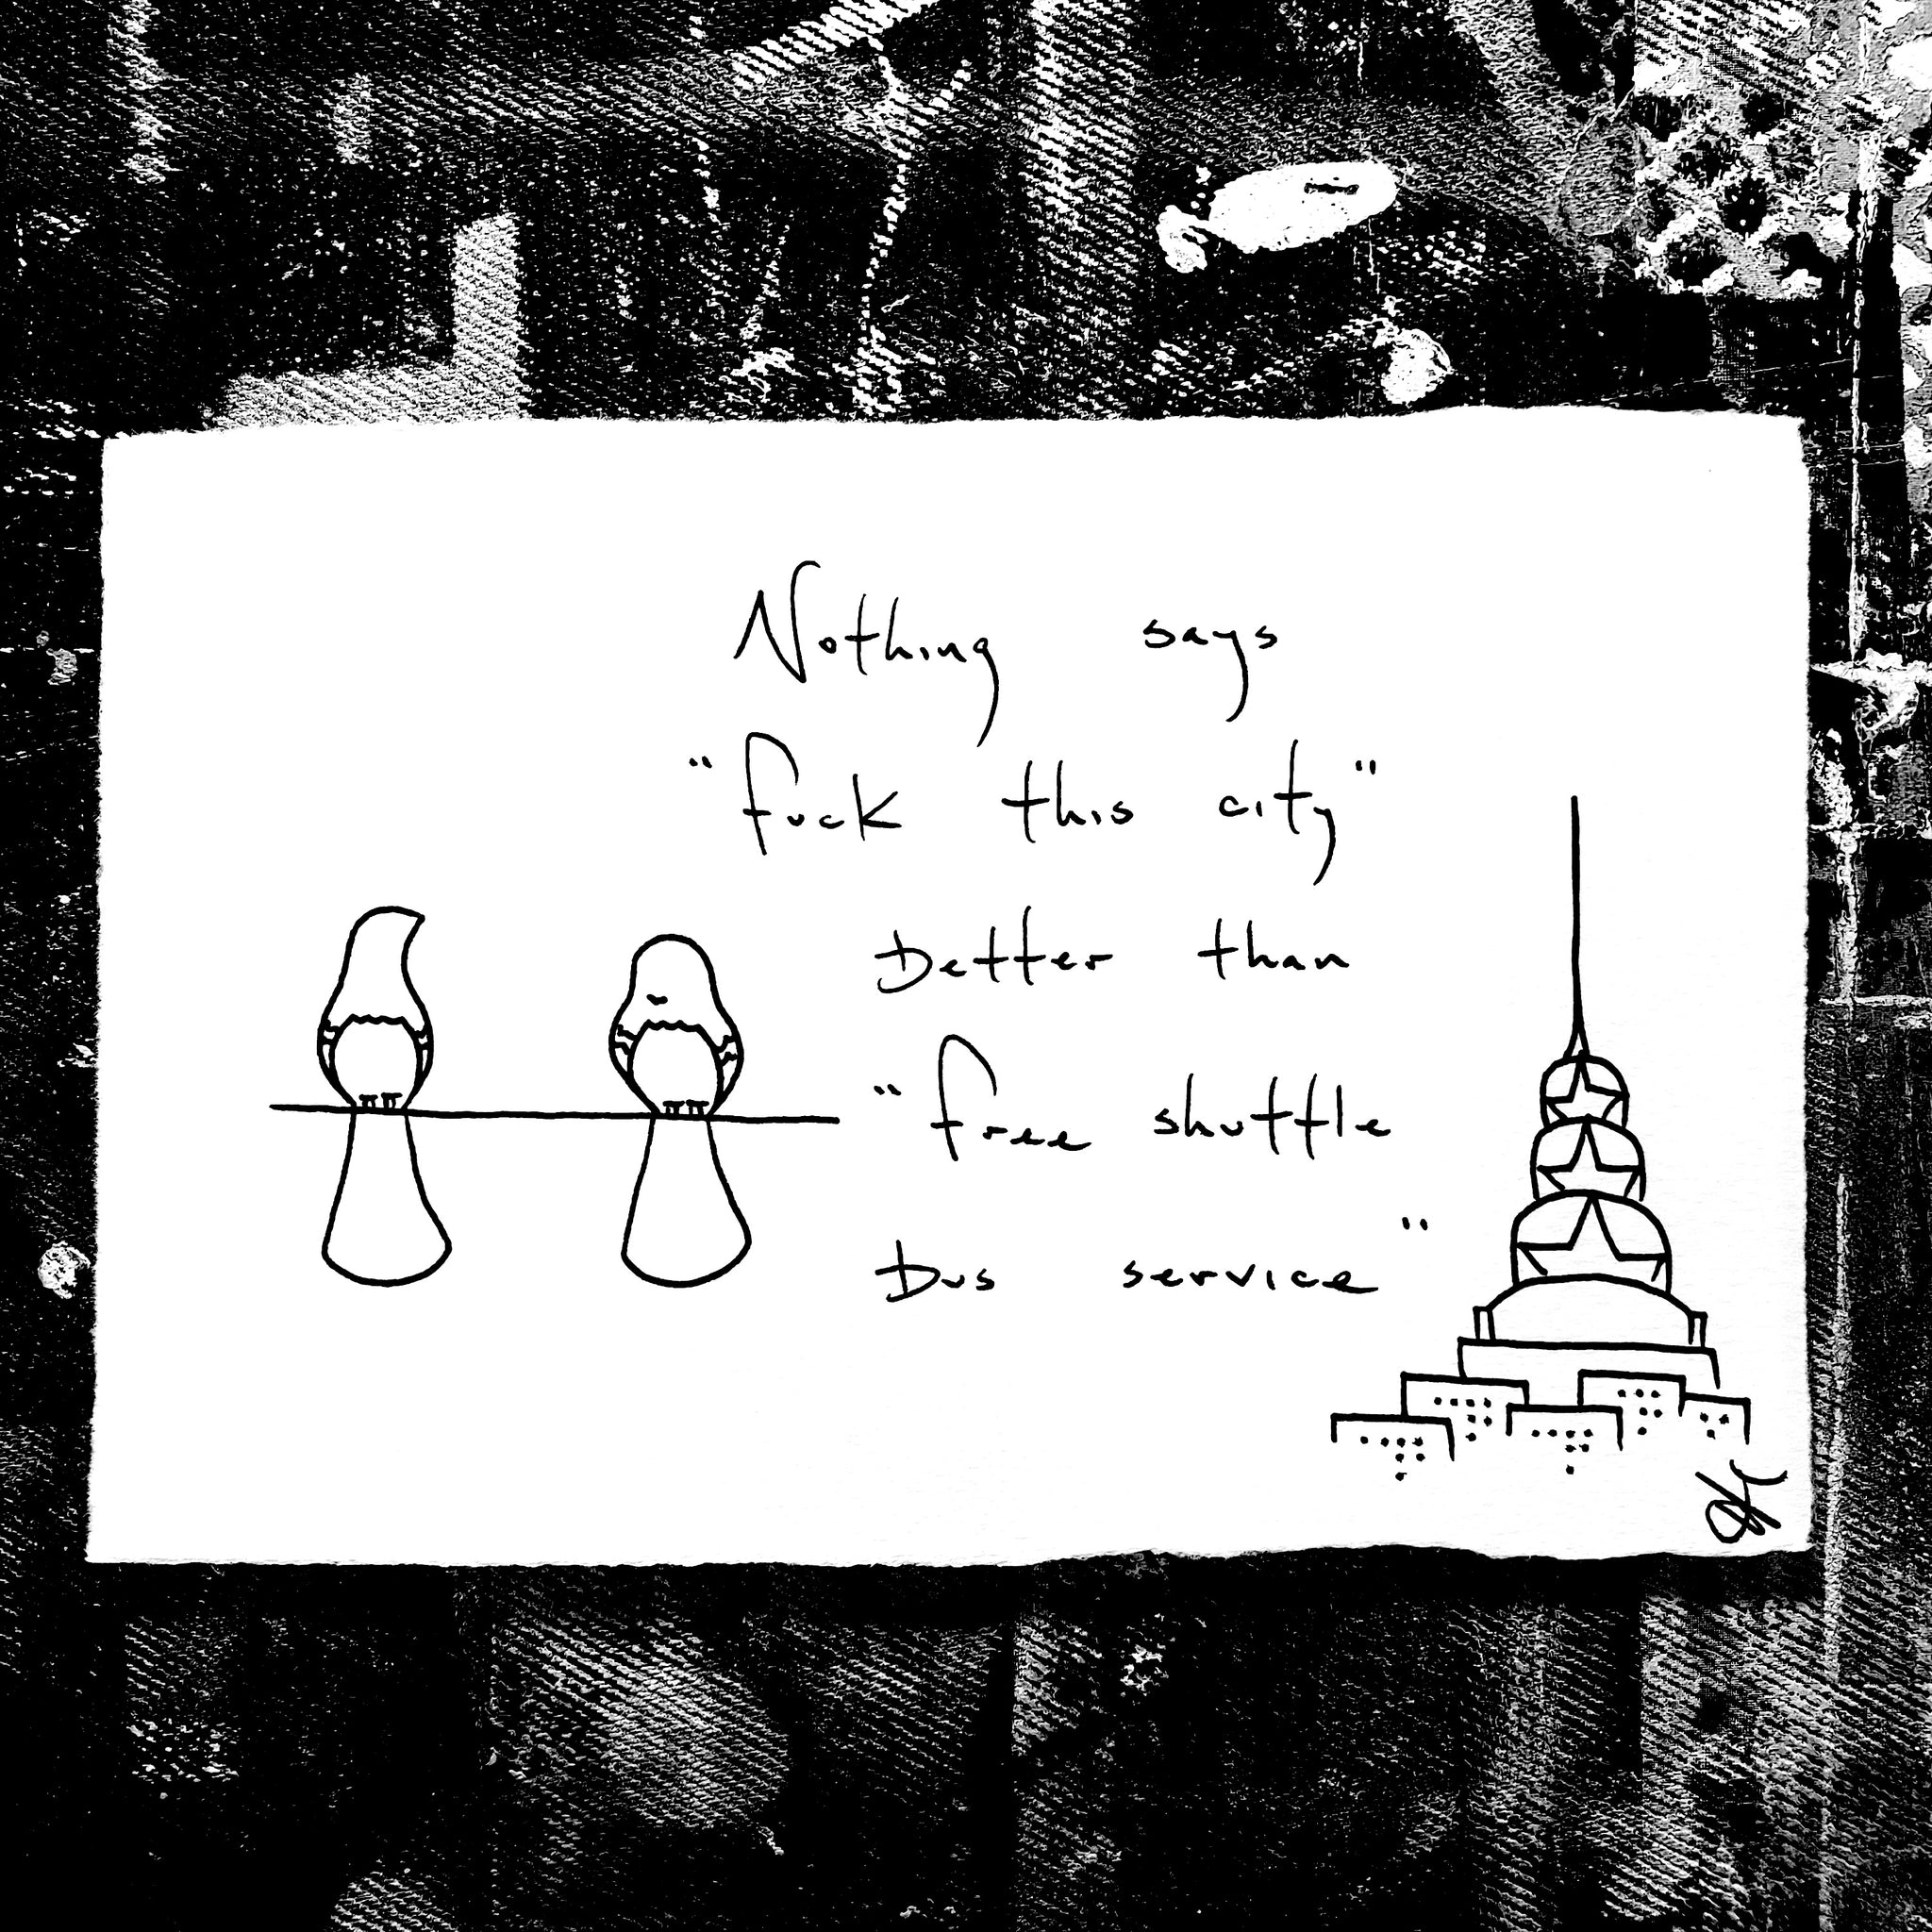 Nothing says
"fuck this city"
better than
"free shuttle
bus service"